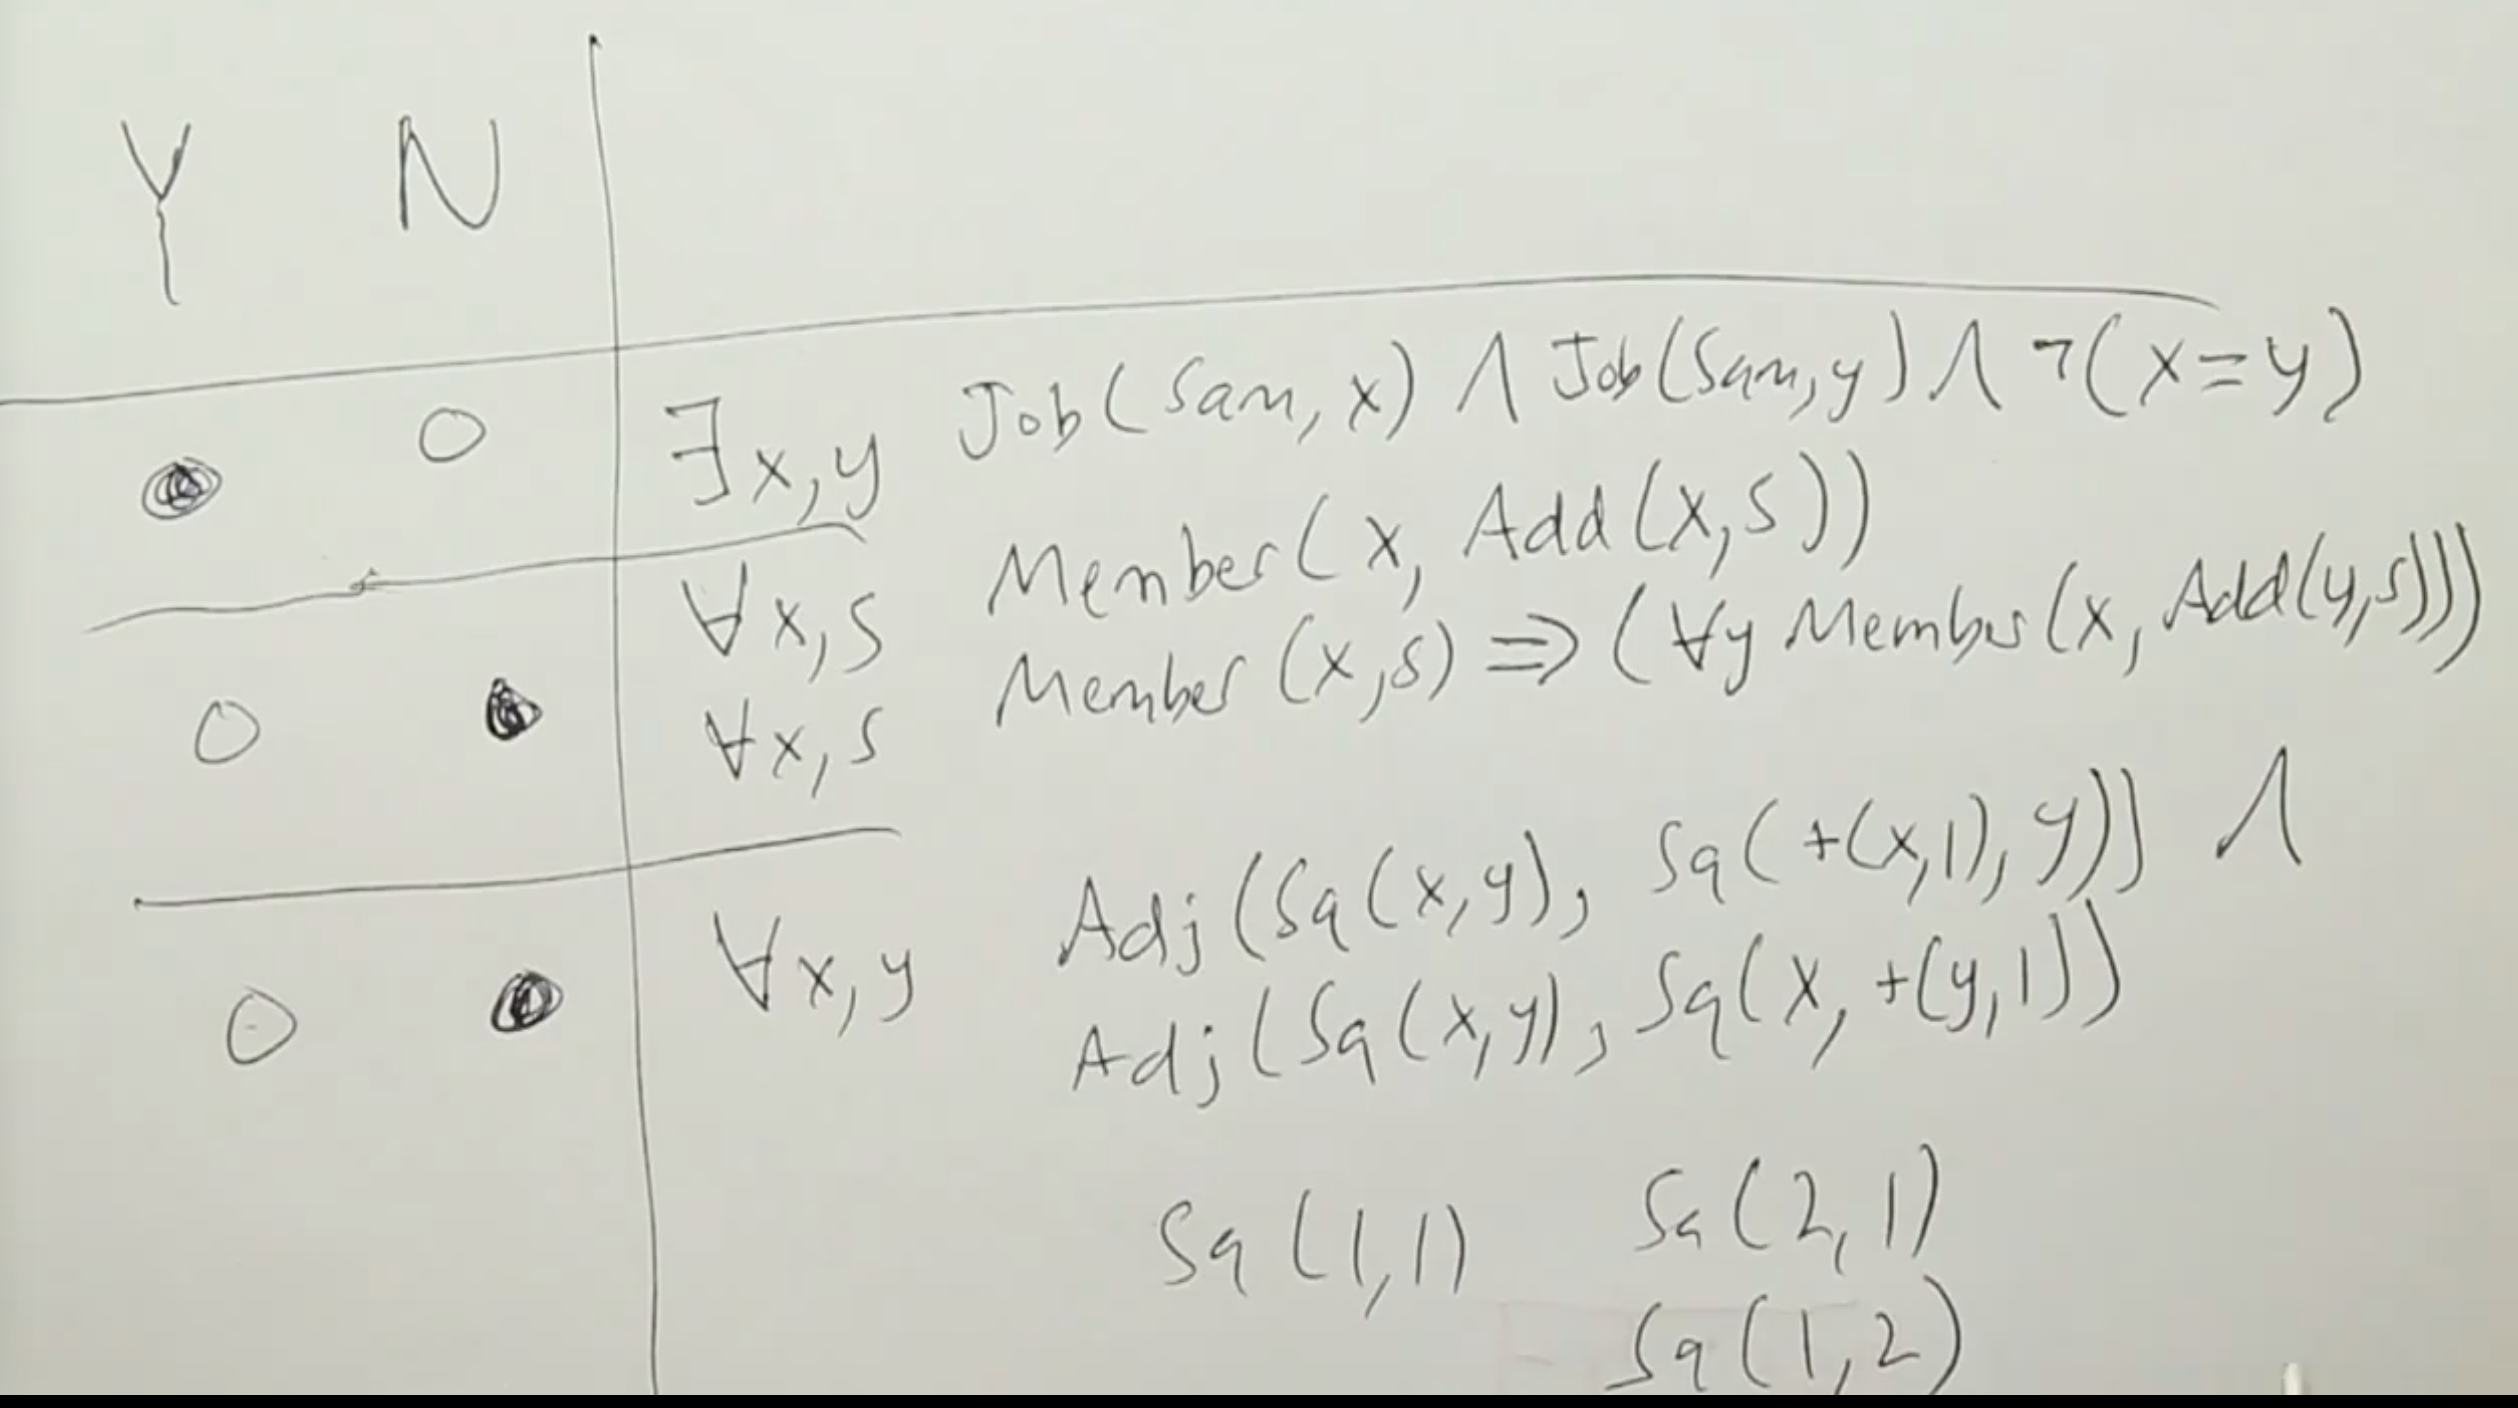 Y N
∃x,y Job(Sam, x) ∧ Job(Sam, y) ∧ ¬(x=y)
∀x,s Member(x, Add(x,s))
∀x,s Member(x,s) ⇒ (∀y Member(x, Add(y,s)))
∀x,y Adj(Sq(x,y), Sq(+(x,1), y)) ∧
Adj(Sq(x,y), Sq(x, +(y,1)))
Sq(1,1) Sq(2,1)
Sq(1,2)